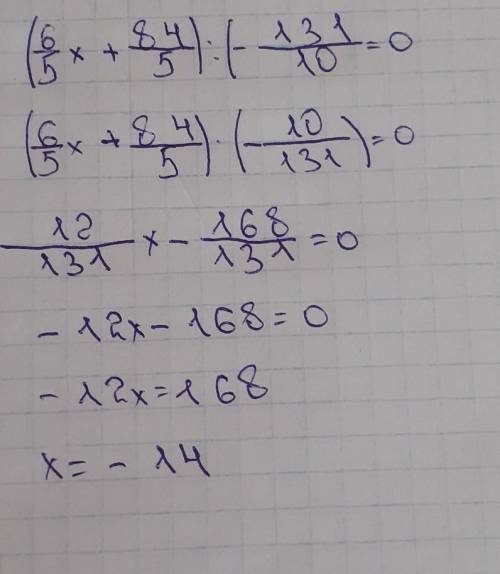 (6/5 x + 84/5) : (- 131/10 = 0
(6/5 x + 84/5) · (- 10/131) = 0
12/131 x - 168/131 = 0
- 12x - 168 = 0
- 12x = 168
x = - 14